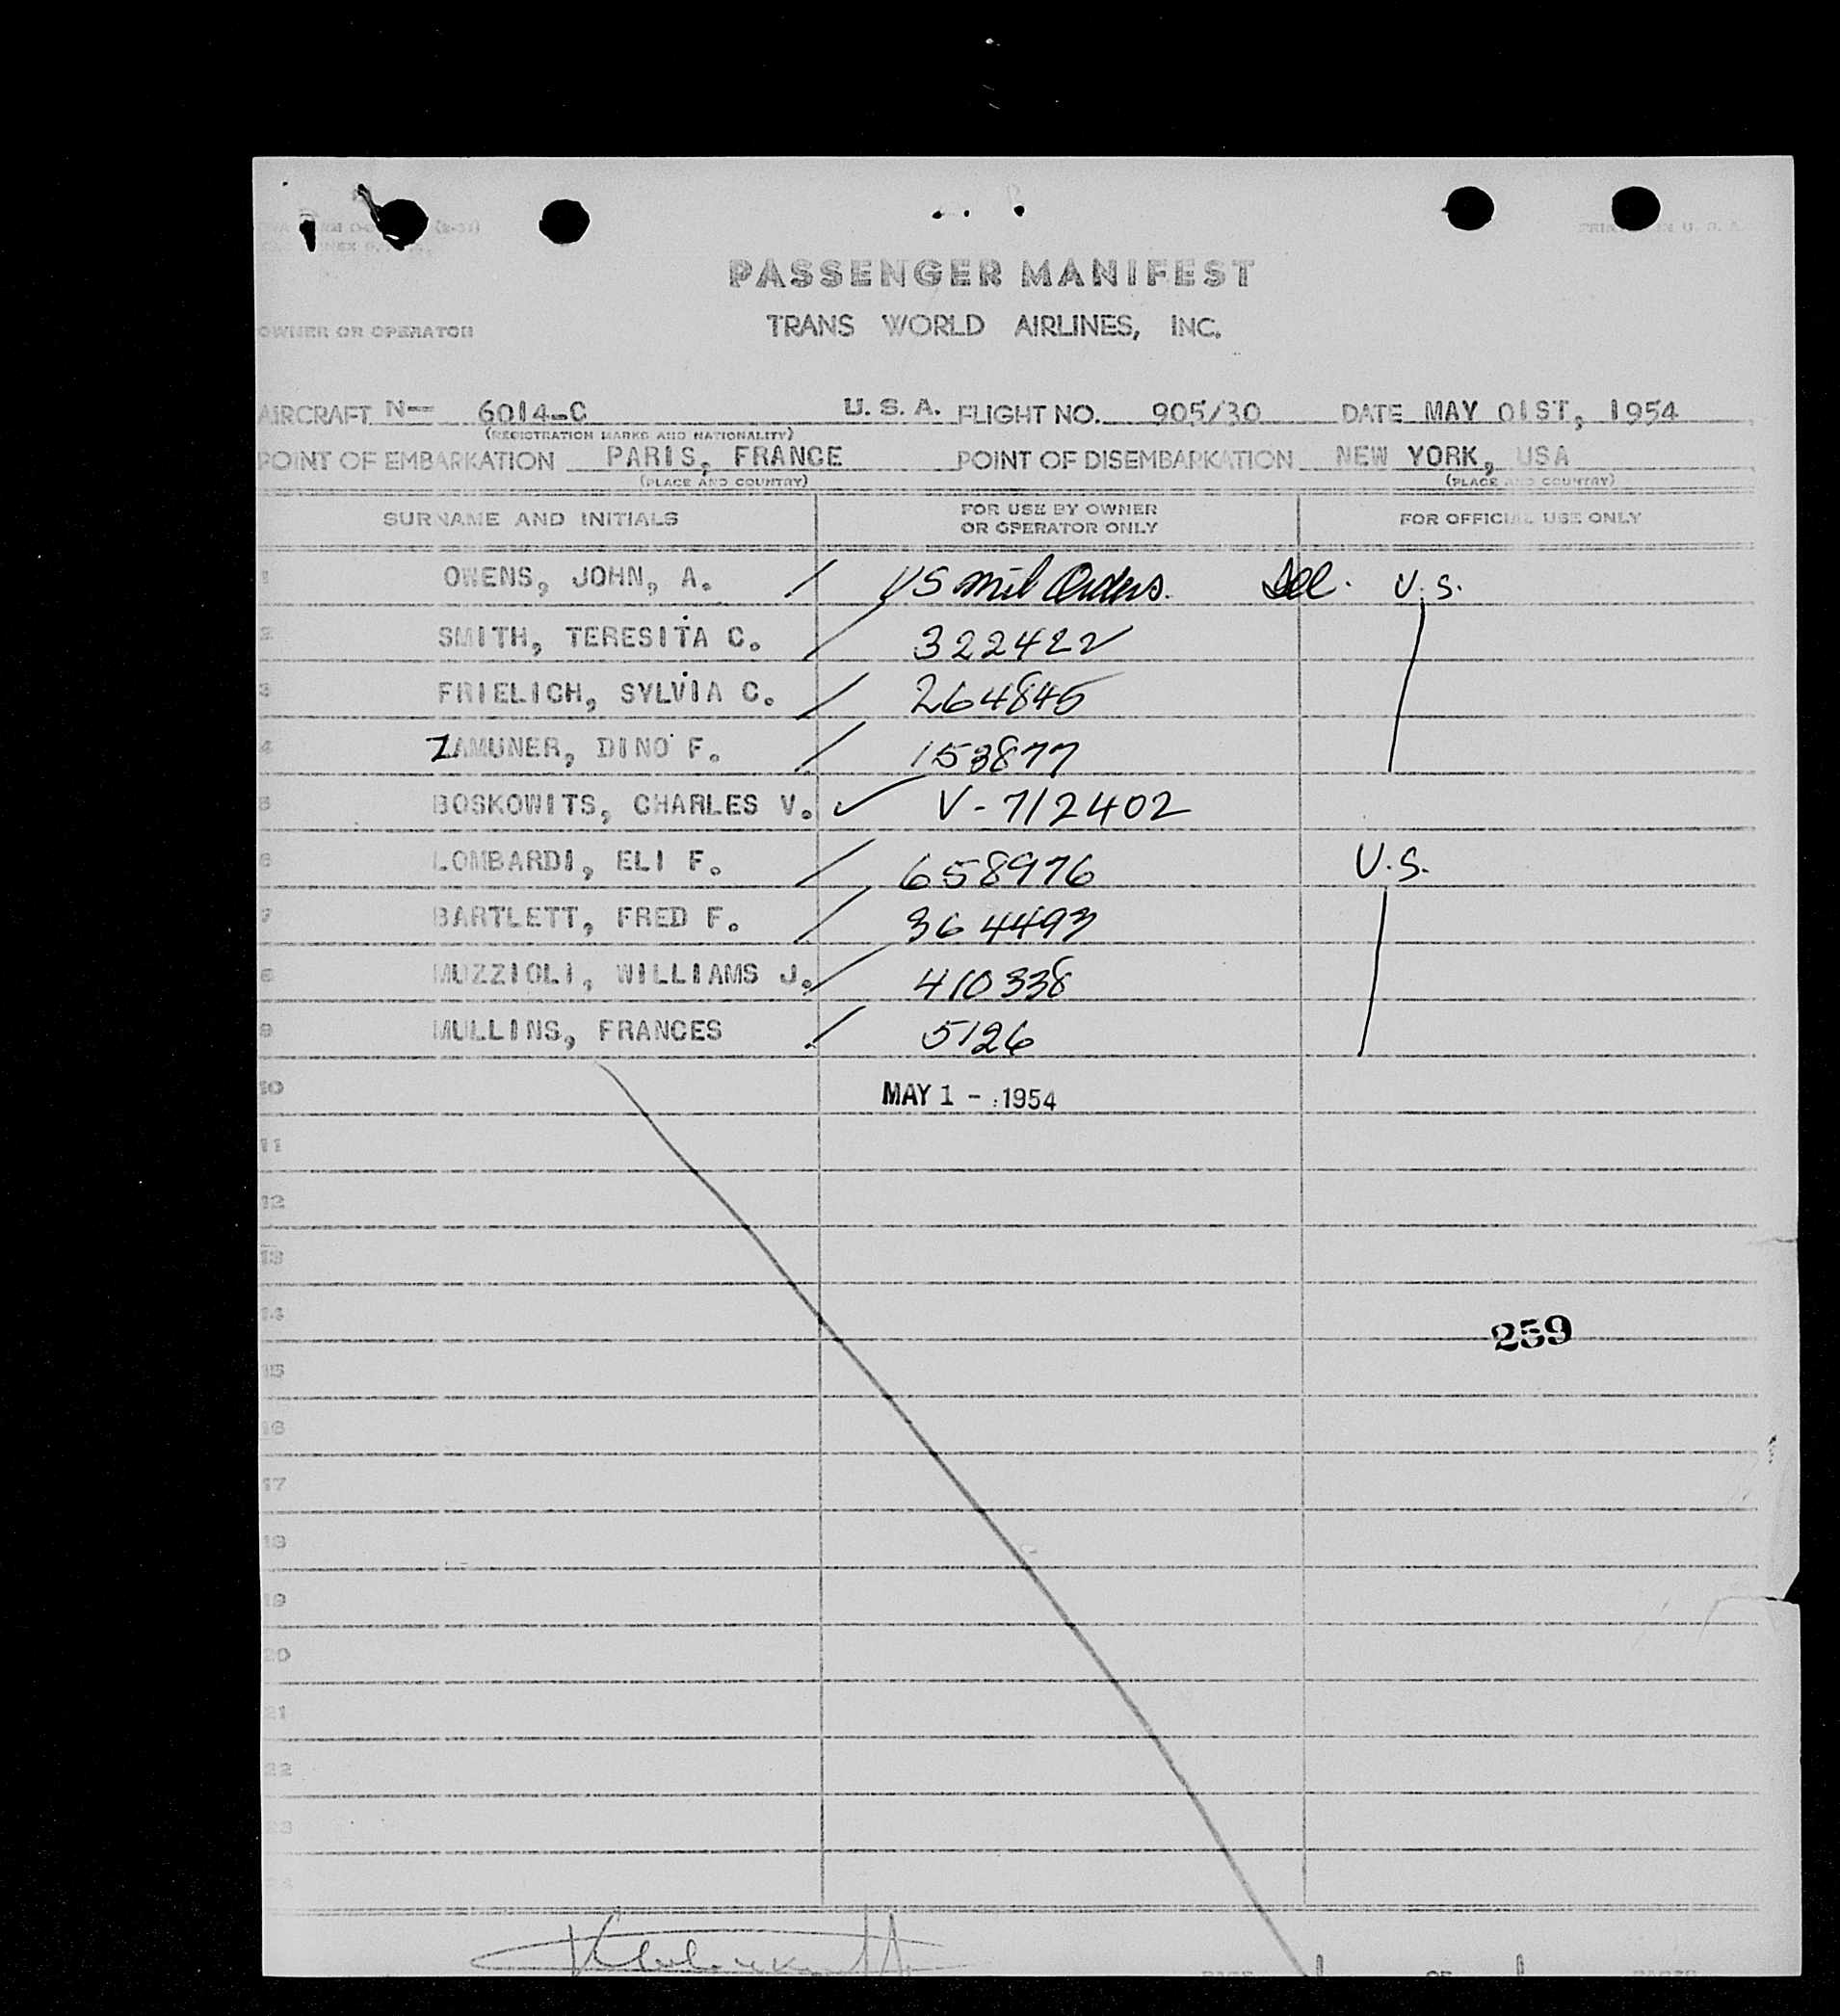 PASSENGER MANIFEST
OWNER OR OPERATOR TRANS WORLD AIRLINES, INC.
AIRCRAFT N— 6014-C U. S. A. FLIGHT NO. 905/30 DATE MAY 01ST, 1954
(REGISTRATION MARKS AND NATIONALITY)
POINT OF EMBARKATION PARIS, FRANCE POINT OF DISEMBARKATION NEW YORK, USA
(PLACE AND COUNTRY) (PLACE AND COUNTRY)
SURNAME AND INITIALS FOR USE BY OWNER OR OPERATOR ONLY FOR OFFICIAL USE ONLY
1 OWENS, JOHN, A. / US Mil Orders. U.S.
2 SMITH, TERESITA C. / 322422
3 FRIELICH, SYLVIA C. / 264845
4 ZAMUNER, DINO F. / 153877
5 BOSKOWITS, CHARLES V. ✓ V-712402
6 LOMBARDI, ELI F. / 658976 U.S.
7 BARTLETT, FRED F. / 364493
8 MUZZIOLI, WILLIAMS J. / 410338
9 MULLINS, FRANCES / 5126
10 MAY 1 - 1954
11
12
13
14 259
15
16
17
18
19
20
21
22
23
24